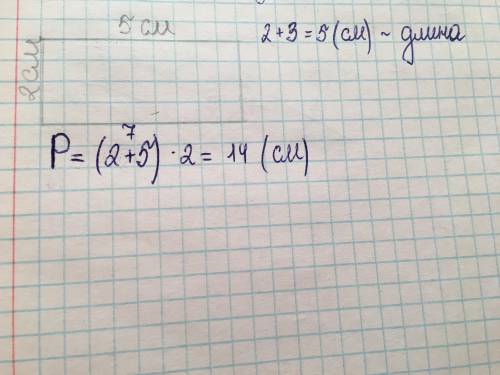 5 см
2+3=5(см) ~ длина
2см
7
P=(2+5)·2= 14 (см)